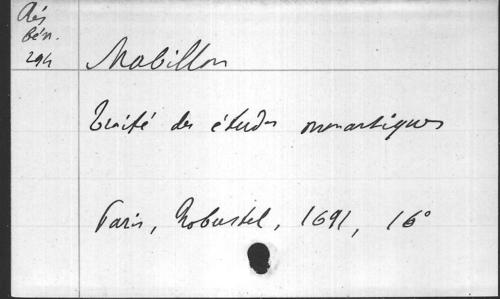 Rés
bén.
294
Mabillon
Traité des études monastiques
Paris, Robustel, 1691, 16°